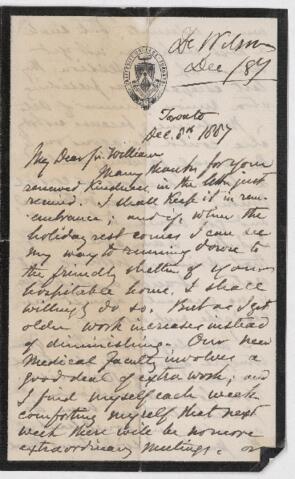 Dr Wilson
Dec /87
Toronto
Dec. 8th 1887
My Dear Sir William
Many thanks for your
renewed kindness in the letter just
received. I shall keep it in rem-
embrance; and if, when the
holiday rest comes I can see
my way to running down to
the friendly shelter of your
hospitable home, I shall
willingly do so. But as I get
older work increases instead
of diminishing. Our new
Medical Faculty involves a
good deal of extra work; and
I find myself each week
comforting myself that next
week there will be no more
extraordinary meetings. or